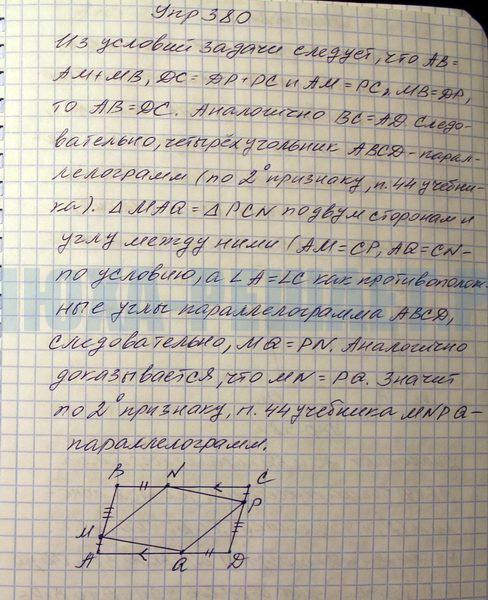 Упр 380
Из условий задачи следует, что AB=
AM+MB, DC=DP+PC и AM=PC, MB=DP,
то AB=DC. Аналогично BC=AD следо-
вательно, четырёхугольник ABCD-парал-
лелограмм (по 2° признаку, п.44 учебни-
ка). △ MAQ = △ PCN по двум сторонам и
углу между ними (AM=CP, AQ=CN-
по условию, а ∠A=∠C как противополож-
ные углы параллелограмма ABCD,
следовательно, MQ=PN. Аналогично
доказывается, что MN=PQ. Значит
по 2° признаку, п. 44 учебника MNPQ-
параллелограмм.
B N C
P
M
A Q D